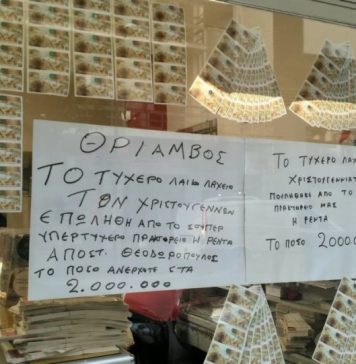 ΘΡΙΑΜΒΟΣ
ΤΟ ΤΥΧΕΡΟ ΛΑΙΚΟ ΛΑΧΕΙΟ
ΤΩΝ ΧΡΙΣΤΟΥΓΕΝΝΩΝ
ΕΠΩΛΗΘΗ ΑΠΟ ΤΟ ΣΟΥΠΕΡ
ΥΠΕΡΤΥΧΕΡΟ ΠΡΑΚΤΟΡΕΙΟ Η ΡΕΝΤΑ
ΑΠΟΣΤ. ΘΕΟΔΩΡΟΠΟΥΛΟΣ
ΤΟ ΠΟΣΟ ΑΝΕΡΧΑΤΕ ΣΤΑ
2.000.000
ΤΟ ΤΥΧΕΡΟ ΛΑΧ
ΧΡΙΣΤΟΥΓΕΝΝΙΑΤ
ΠΟΥΛΗΘΗΚΕ ΑΠΟ ΤΟ
ΠΡΑΚΤΟΡΕΙΟ ΜΑΣ
Η ΡΕΝΤΑ
ΤΟ ΠΟΣΟ 2000.0